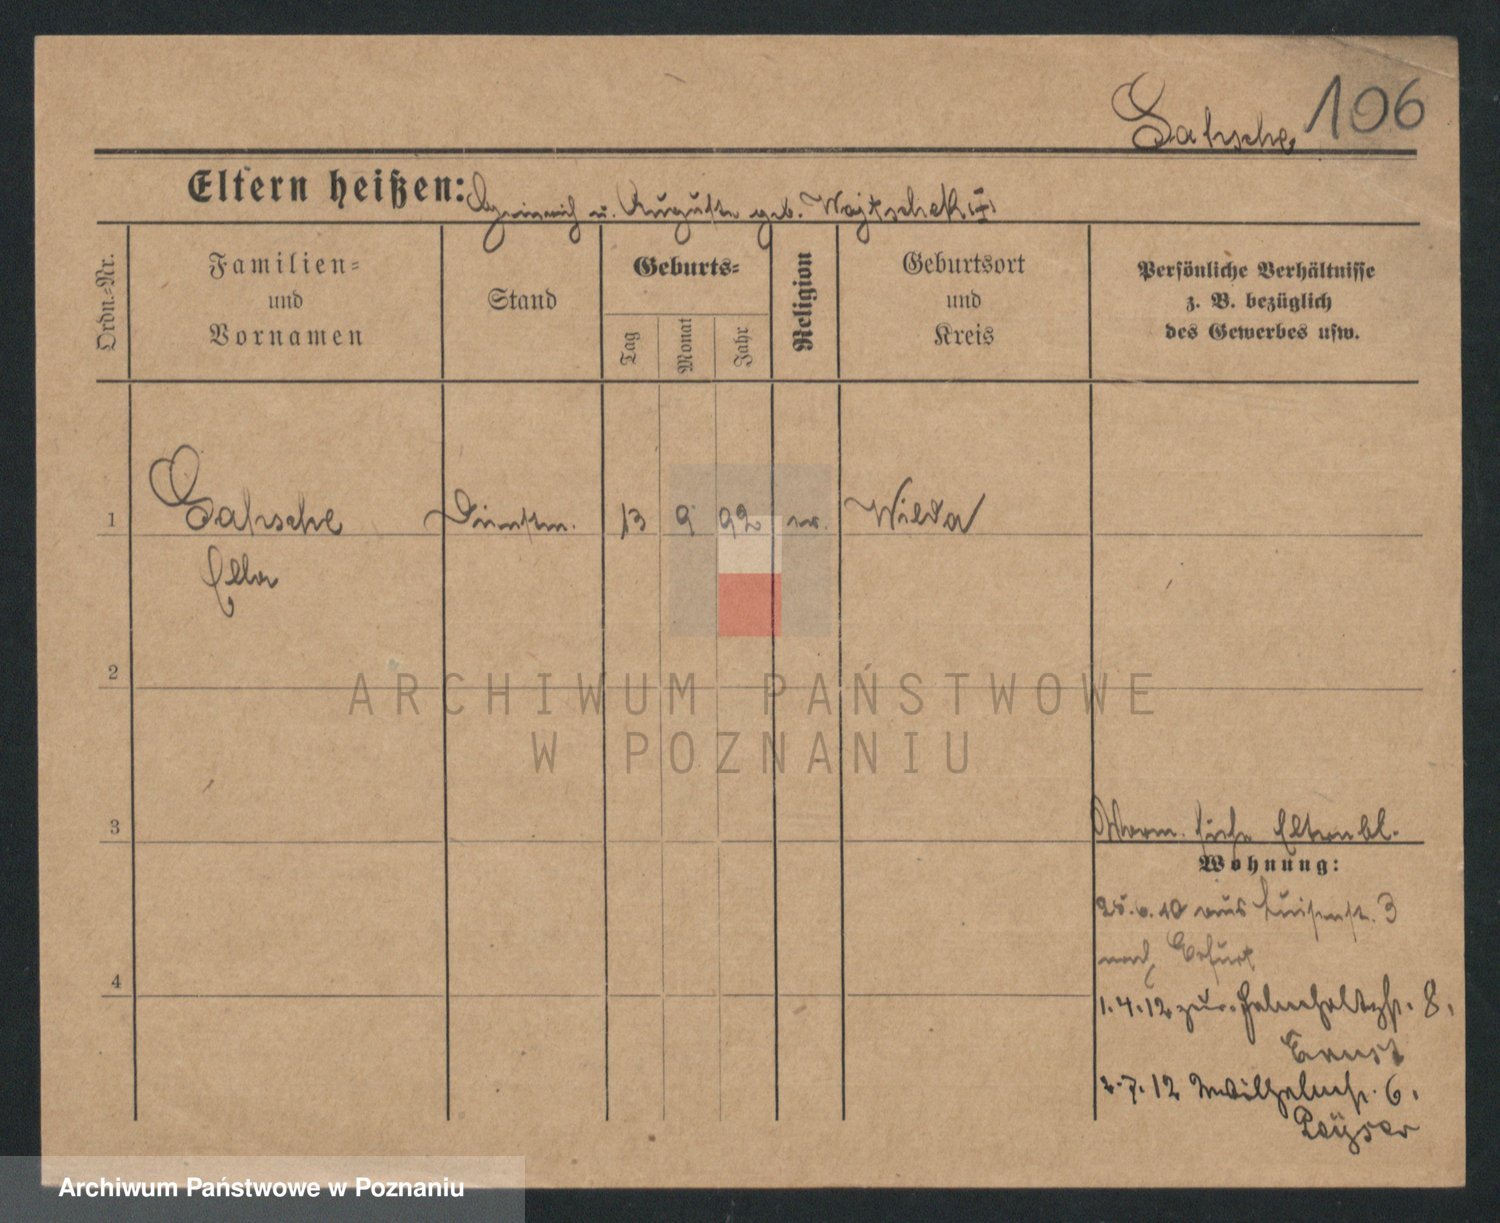 106
Eltern heißen: Heinrich u. Auguste geb.
Ordn.=Nr.
Familien=
und
Vornamen
Stand
Geburts=
Tag
Monat
Jahr
Religion
Geburtsort
und
Kreis
Persönliche Verhältnisse
z. B. bezüglich
des Gewerbes usw.
1
Dienstm. 13 9 92 Wilda
Ella
2
ARCHIWUM PAŃSTWOWE
W POZNANIU
3
siehe Elternbl.
Wohnung:
25.6.10 aus Luisenst. 3
nach Erfurt
4
1.4.12 8.
Ernst
2.7.12 Wilhelmst. 6.
Peÿser
Archiwum Państwowe w Poznaniu